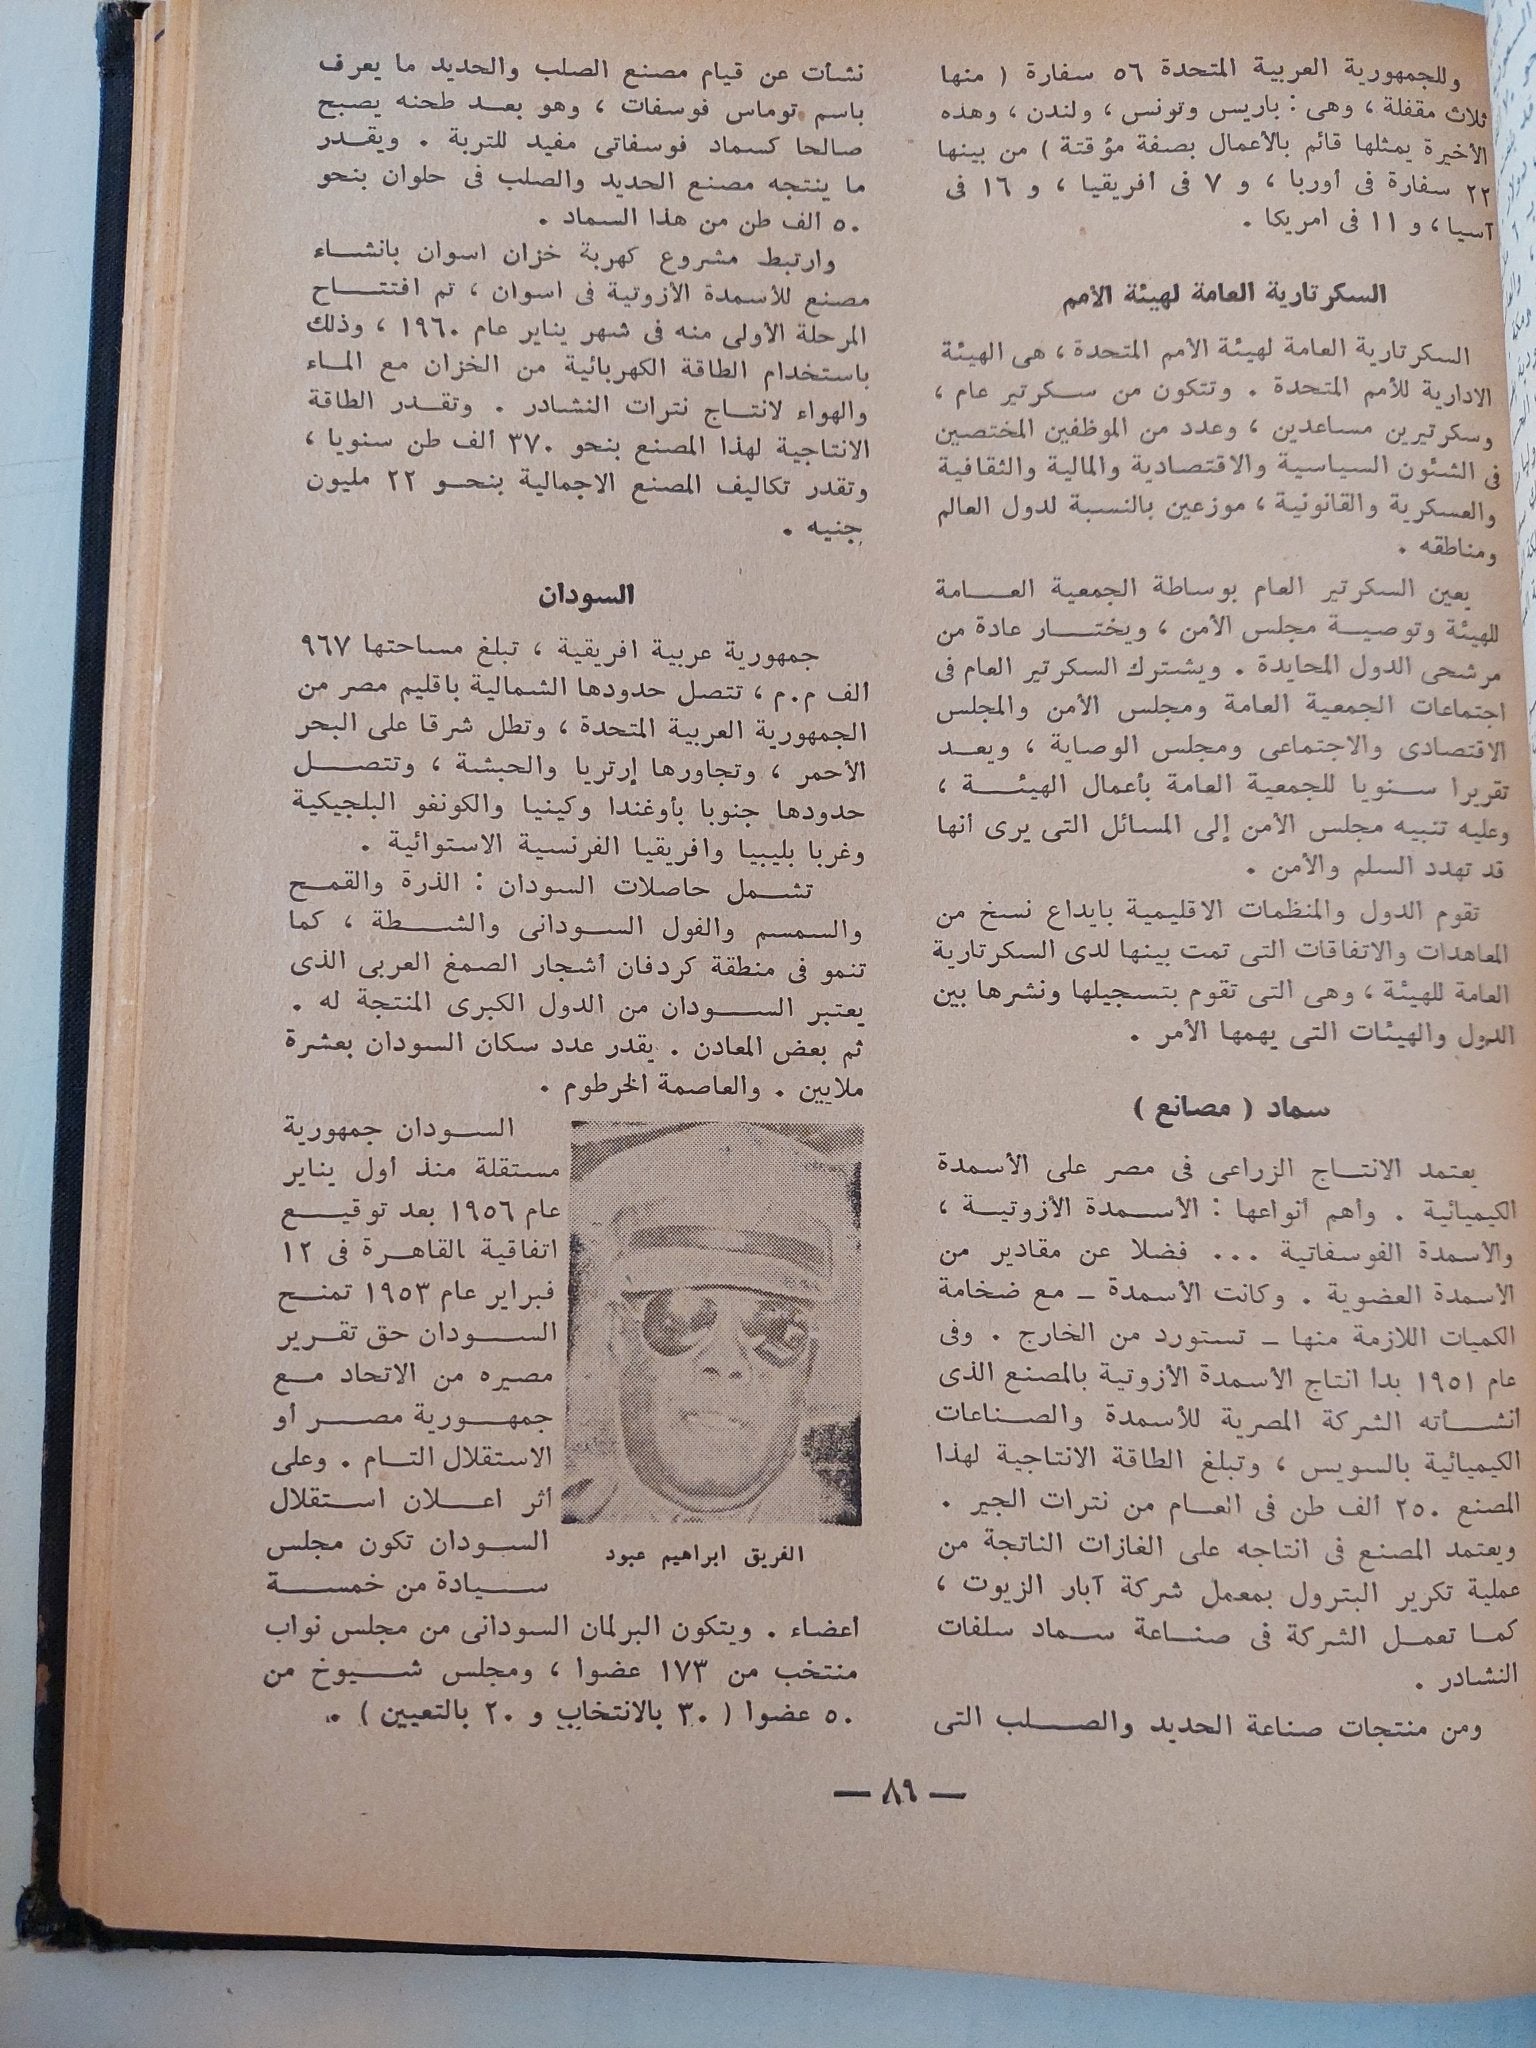 وللجمهورية العربية المتحدة ٥٦ سفارة ( منها
ثلاث مقفلة ، وهى : باريس وتونس ، ولندن ، وهذه
الأخيرة يمثلها قائم بالأعمال بصفة مؤقتة ) من بينها
٢٢ سفارة فى أوربا ، و ٧ فى أفريقيا ، و ١٦ فى
آسيا ، و ١١ فى امريكا .
السكرتارية العامة لهيئة الأمم
السكرتارية العامة لهيئة الأمم المتحدة ، هى الهيئة
الادارية للأمم المتحدة . وتتكون من سكرتير عام ،
وسكرتيرين مساعدين ، وعدد من الموظفين المختصين
فى الشئون السياسية والاقتصادية والمالية والثقافية
والعسكرية والقانونية ، موزعين بالنسبة لدول العالم
ومناطقه .
يعين السكرتير العام بوساطة الجمعية العامة
للهيئة وتوصية مجلس الأمن ، ويختار عادة من
مرشحى الدول المحايدة . ويشترك السكرتير العام فى
اجتماعات الجمعية العامة ومجلس الأمن والمجلس
الاقتصادى والاجتماعى ومجلس الوصاية ، ويعد
تقريرا سنويا للجمعية العامة بأعمال الهيئة ،
وعليه تنبيه مجلس الأمن إلى المسائل التى يرى أنها
قد تهدد السلم والأمن .
تقوم الدول والمنظمات الاقليمية بايداع نسخ من
المعاهدات والاتفاقات التى تمت بينها لدى السكرتارية
العامة للهيئة ، وهى التى تقوم بتسجيلها ونشرها بين
الدول والهيئات التى يهمها الأمر .
سماد ( مصانع )
يعتمد الانتاج الزراعى فى مصر على الأسمدة
الكيميائية . وأهم أنواعها : الأسمدة الأزوتية ،
والأسمدة الفوسفاتية ... فضلا عن مقادير من
الأسمدة العضوية . وكانت الأسمدة ــ مع ضخامة
الكميات اللازمة منها ــ تستورد من الخارج . وفى
عام ١٩٥١ بدأ انتاج الأسمدة الأزوتية بالمصنع الذى
أنشأته الشركة المصرية للأسمدة والصناعات
الكيميائية بالسويس ، وتبلغ الطاقة الانتاجية لهذا
المصنع ٢٥٠ ألف طن فى العام من نترات الجير .
ويعتمد المصنع فى انتاجه على الغازات الناتجة من
عملية تكرير البترول بمعمل شركة آبار الزيوت ،
كما تعمل الشركة فى صناعة سماد سلفات
النشادر .
ومن منتجات صناعة الحديد والصلب التى
نشأت عن قيام مصنع الصلب والحديد ما يعرف
باسم توماس فوسفات ، وهو بعد طحنه يصبح
صالحا كسماد فوسفاتى مفيد للتربة . ويقدر
ما ينتجه مصنع الحديد والصلب فى حلوان بنحو
٥٠ ألف طن من هذا السماد .
وارتبط مشروع كهربة خزان اسوان بانشاء
مصنع للأسمدة الأزوتية فى اسوان ، تم افتتاح
المرحلة الأولى منه فى شهر يناير عام ١٩٦٠ ، وذلك
باستخدام الطاقة الكهربائية من الخزان مع الماء
والهواء لانتاج نترات النشادر . وتقدر الطاقة
الانتاجية لهذا المصنع بنحو ٣٧٠ ألف طن سنويا ،
وتقدر تكاليف المصنع الاجمالية بنحو ٢٢ مليون
جنيه .
السودان
جمهورية عربية افريقية ، تبلغ مساحتها ٩٦٧
ألف م.م ، تتصل حدودها الشمالية باقليم مصر من
الجمهورية العربية المتحدة ، وتطل شرقا على البحر
الأحمر ، وتجاورها إرتريا والحبشة ، وتتصل
حدودها جنوبا بأوغندا وكينيا والكونغو البلجيكية
وغربا بليبيا وافريقيا الفرنسية الاستوائية .
تشمل حاصلات السودان : الذرة والقمح
والسمسم والفول السودانى والشطة ، كما
تنمو فى منطقة كردفان أشجار الصمغ العربى الذى
يعتبر السودان من الدول الكبرى المنتجة له .
ثم بعض المعادن . يقدر عدد سكان السودان بعشرة
ملايين . والعاصمة الخرطوم .
السودان جمهورية
مستقلة منذ أول يناير
عام ١٩٥٦ بعد توقيع
اتفاقية القاهرة فى ١٢
فبراير عام ١٩٥٣ تمنح
السودان حق تقرير
مصيره من الاتحاد مع
جمهورية مصر أو
الاستقلال التام . وعلى
أثر اعلان استقلال
السودان تكون مجلس
سيادة من خمسة
الفريق ابراهيم عبود
أعضاء . ويتكون البرلمان السودانى من مجلس نواب
منتخب من ١٧٣ عضوا ، ومجلس شيوخ من
٥٠ عضوا ( ٣٠ بالانتخاب و ٢٠ بالتعيين ) .
— ٨٩ —